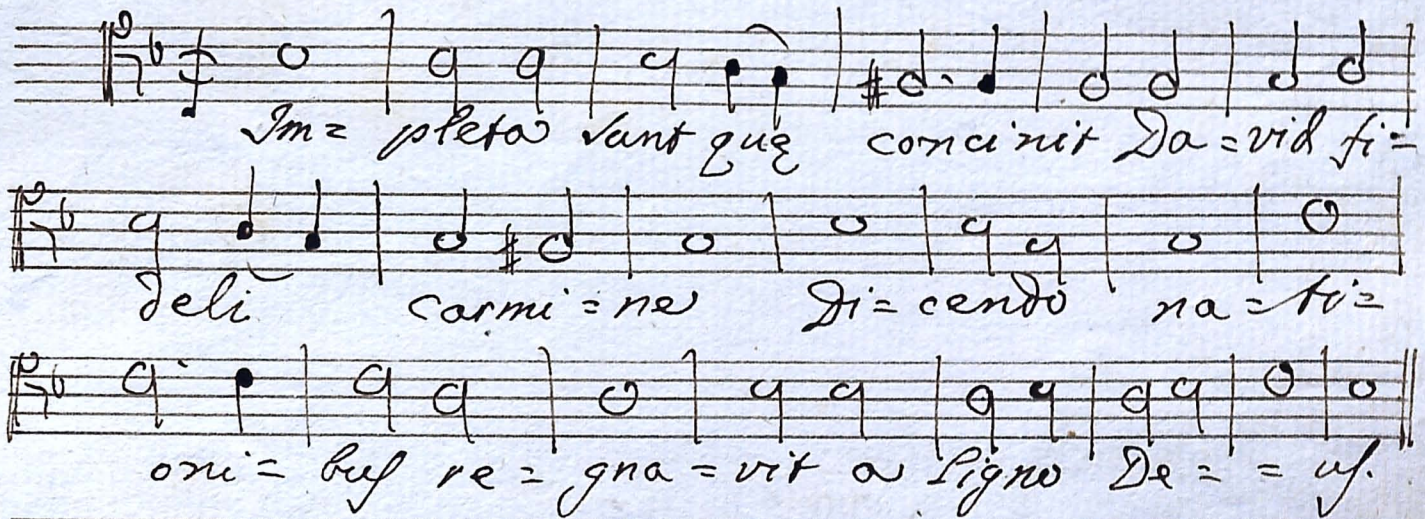 Im= pleta sunt quę concinit Da=vid fi=
deli carmi=ne Di=cendo na=ti=
oni=bus re=gna=vit a ligno De= =us.